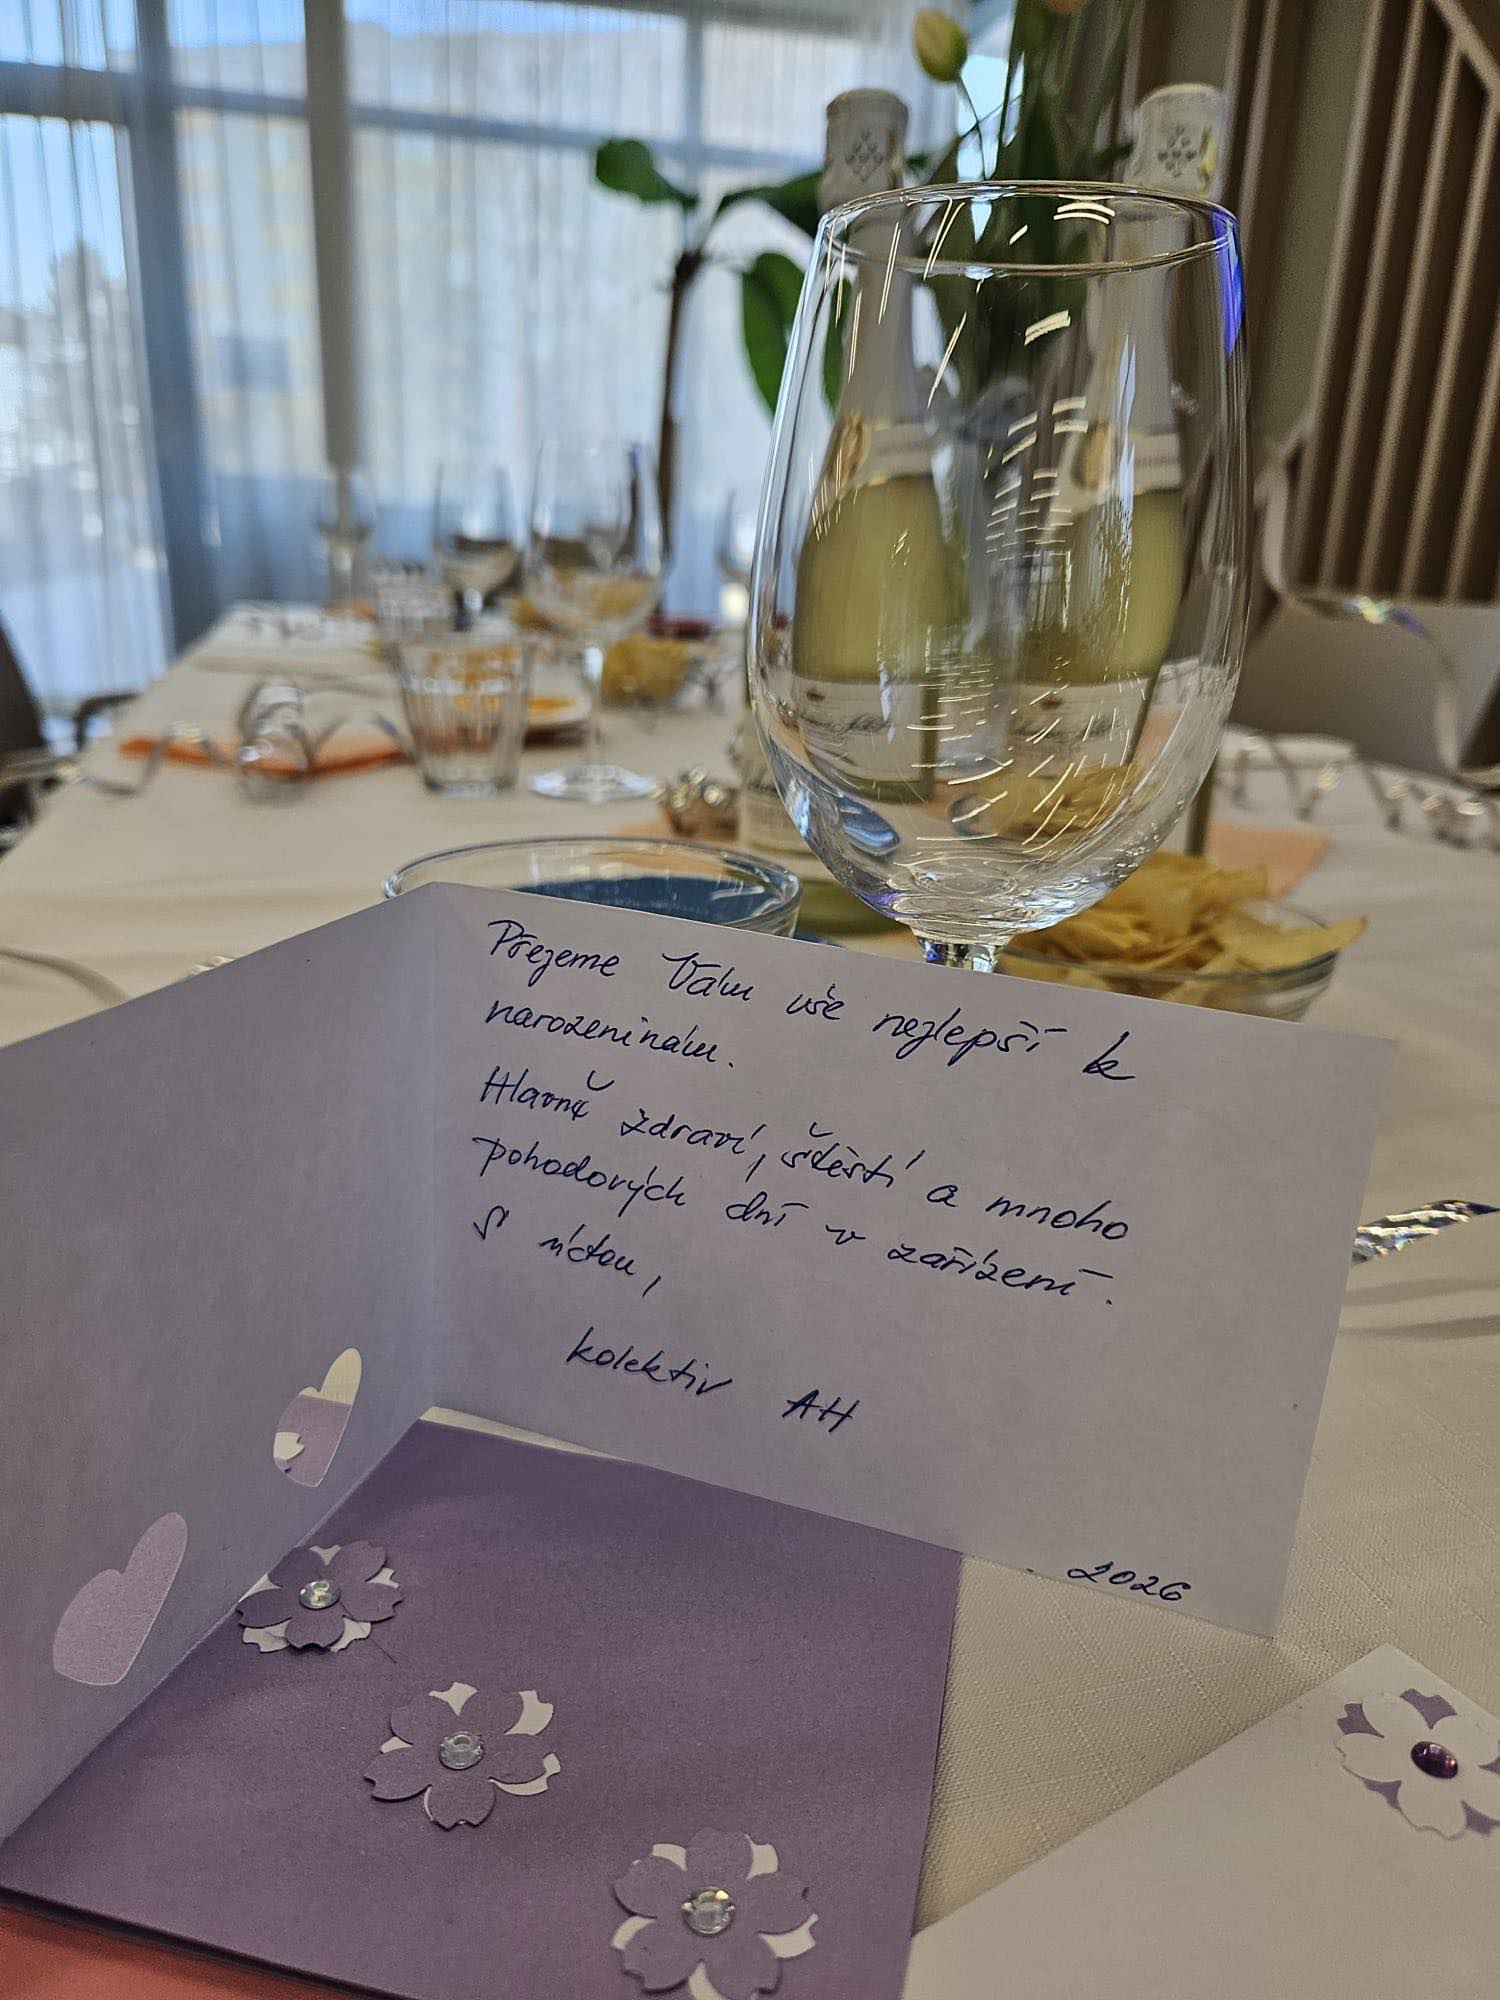 Přejeme Vám vše nejlepší k
narozeninám.
Hlavně zdraví, štěstí a mnoho
pohodových dní v zařízení.
S úctou,
kolektiv AH
2026